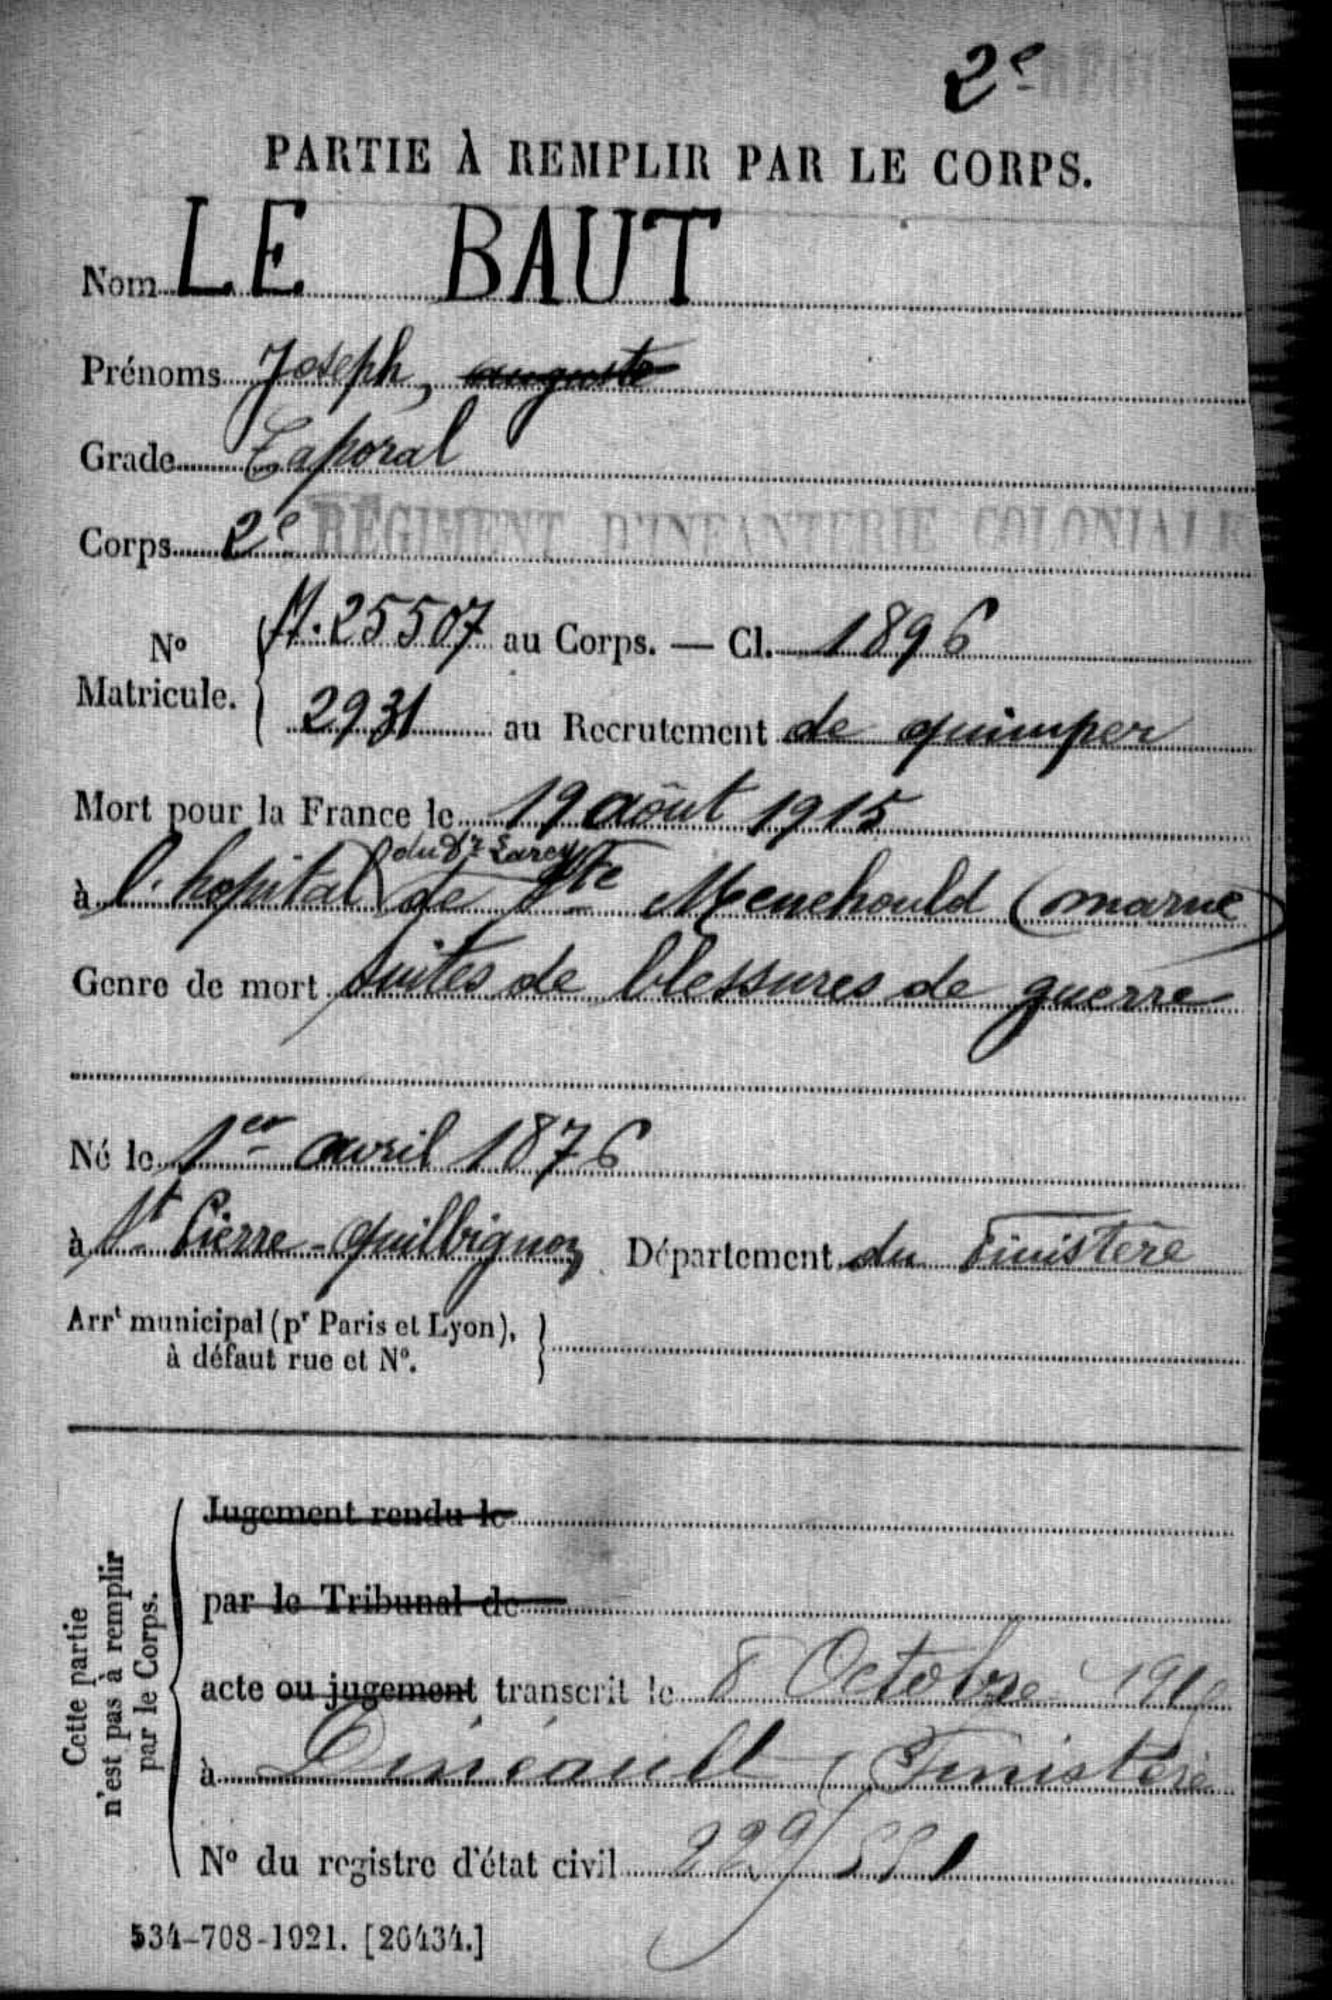 2e
PARTIE À REMPLIR PAR LE CORPS.
Nom LE BAUT
Prénoms Joseph, auguste
Grade Caporal
Corps 2e RÉGIMENT D'INFANTERIE COLONIALE
No Matricule. { 25507 au Corps. — Cl. 1896
2931 au Recrutement de quimper
Mort pour la France le 19 août 1915
à l'hopital du Dr Larey de Ste Menehould (marne)
Genre de mort suites de blessures de guerre
Né le 1er avril 1876
à St Pierre-quilbignon Département du Finistère
Arrt municipal (pr Paris et Lyon), }
à défaut rue et No.
Cette partie
n'est pas à remplir
par le Corps.
Jugement rendu le
par le Tribunal de
acte ou jugement transcrit le 8 Octobre
à Dinéault (Finistère
No du registre d'état civil 229/
534-708-1921. [26434.]